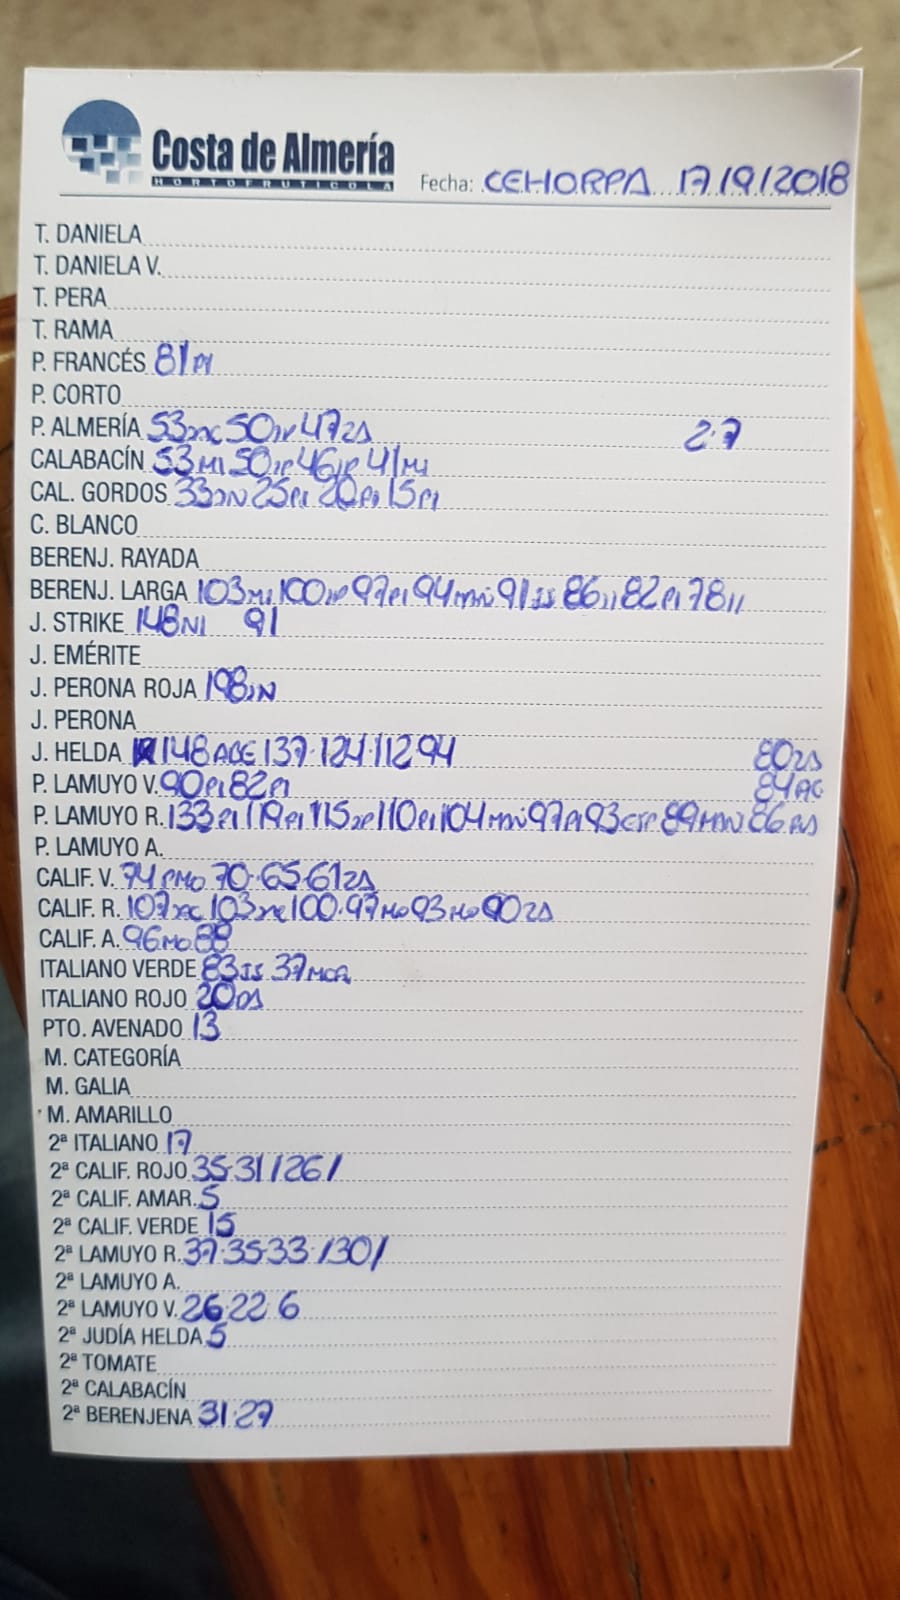 Costa de Almería
HORTOFRUTICOLA
Fecha: CEHORPA 17/9/2018
T. DANIELA
T. DANIELA V.
T. PERA
T. RAMA
P. FRANCÉS 81PI
P. CORTO
P. ALMERÍA 53 50 47ZA 27
CALABACÍN 53MI 50 46 41MI
CAL. GORDOS 33 25PI 20PI 15PI
C. BLANCO
BERENJ. RAYADA
BERENJ. LARGA 103 100 97PI 94 91JS 86 82PI 78
J. STRIKE 148NI 91
J. EMÉRITE
J. PERONA ROJA 198JN
J. PERONA
J. HELDA 148 137·124·112 94 80
P. LAMUYO V. 90PI 82PI 84AG
P. LAMUYO R. 133PI 119PI 115 110PI 104 97PI 93 89 86
P. LAMUYO A.
CALIF. V. 74 70·65·61ZA
CALIF. R. 107 103 100·97MO 93MO 90ZA
CALIF. A. 96MO 88
ITALIANO VERDE 83JS 37
ITALIANO ROJO 20
PTO. AVENADO 13
M. CATEGORÍA
M. GALIA
M. AMARILLO
2ª ITALIANO 17
2ª CALIF. ROJO 35·31/26/
2ª CALIF. AMAR. 5
2ª CALIF. VERDE 15
2ª LAMUYO R. 37·35·33·/30/
2ª LAMUYO A.
2ª LAMUYO V. 26·22 6
2ª JUDÍA HELDA 5
2ª TOMATE
2ª CALABACÍN
2ª BERENJENA 31·27